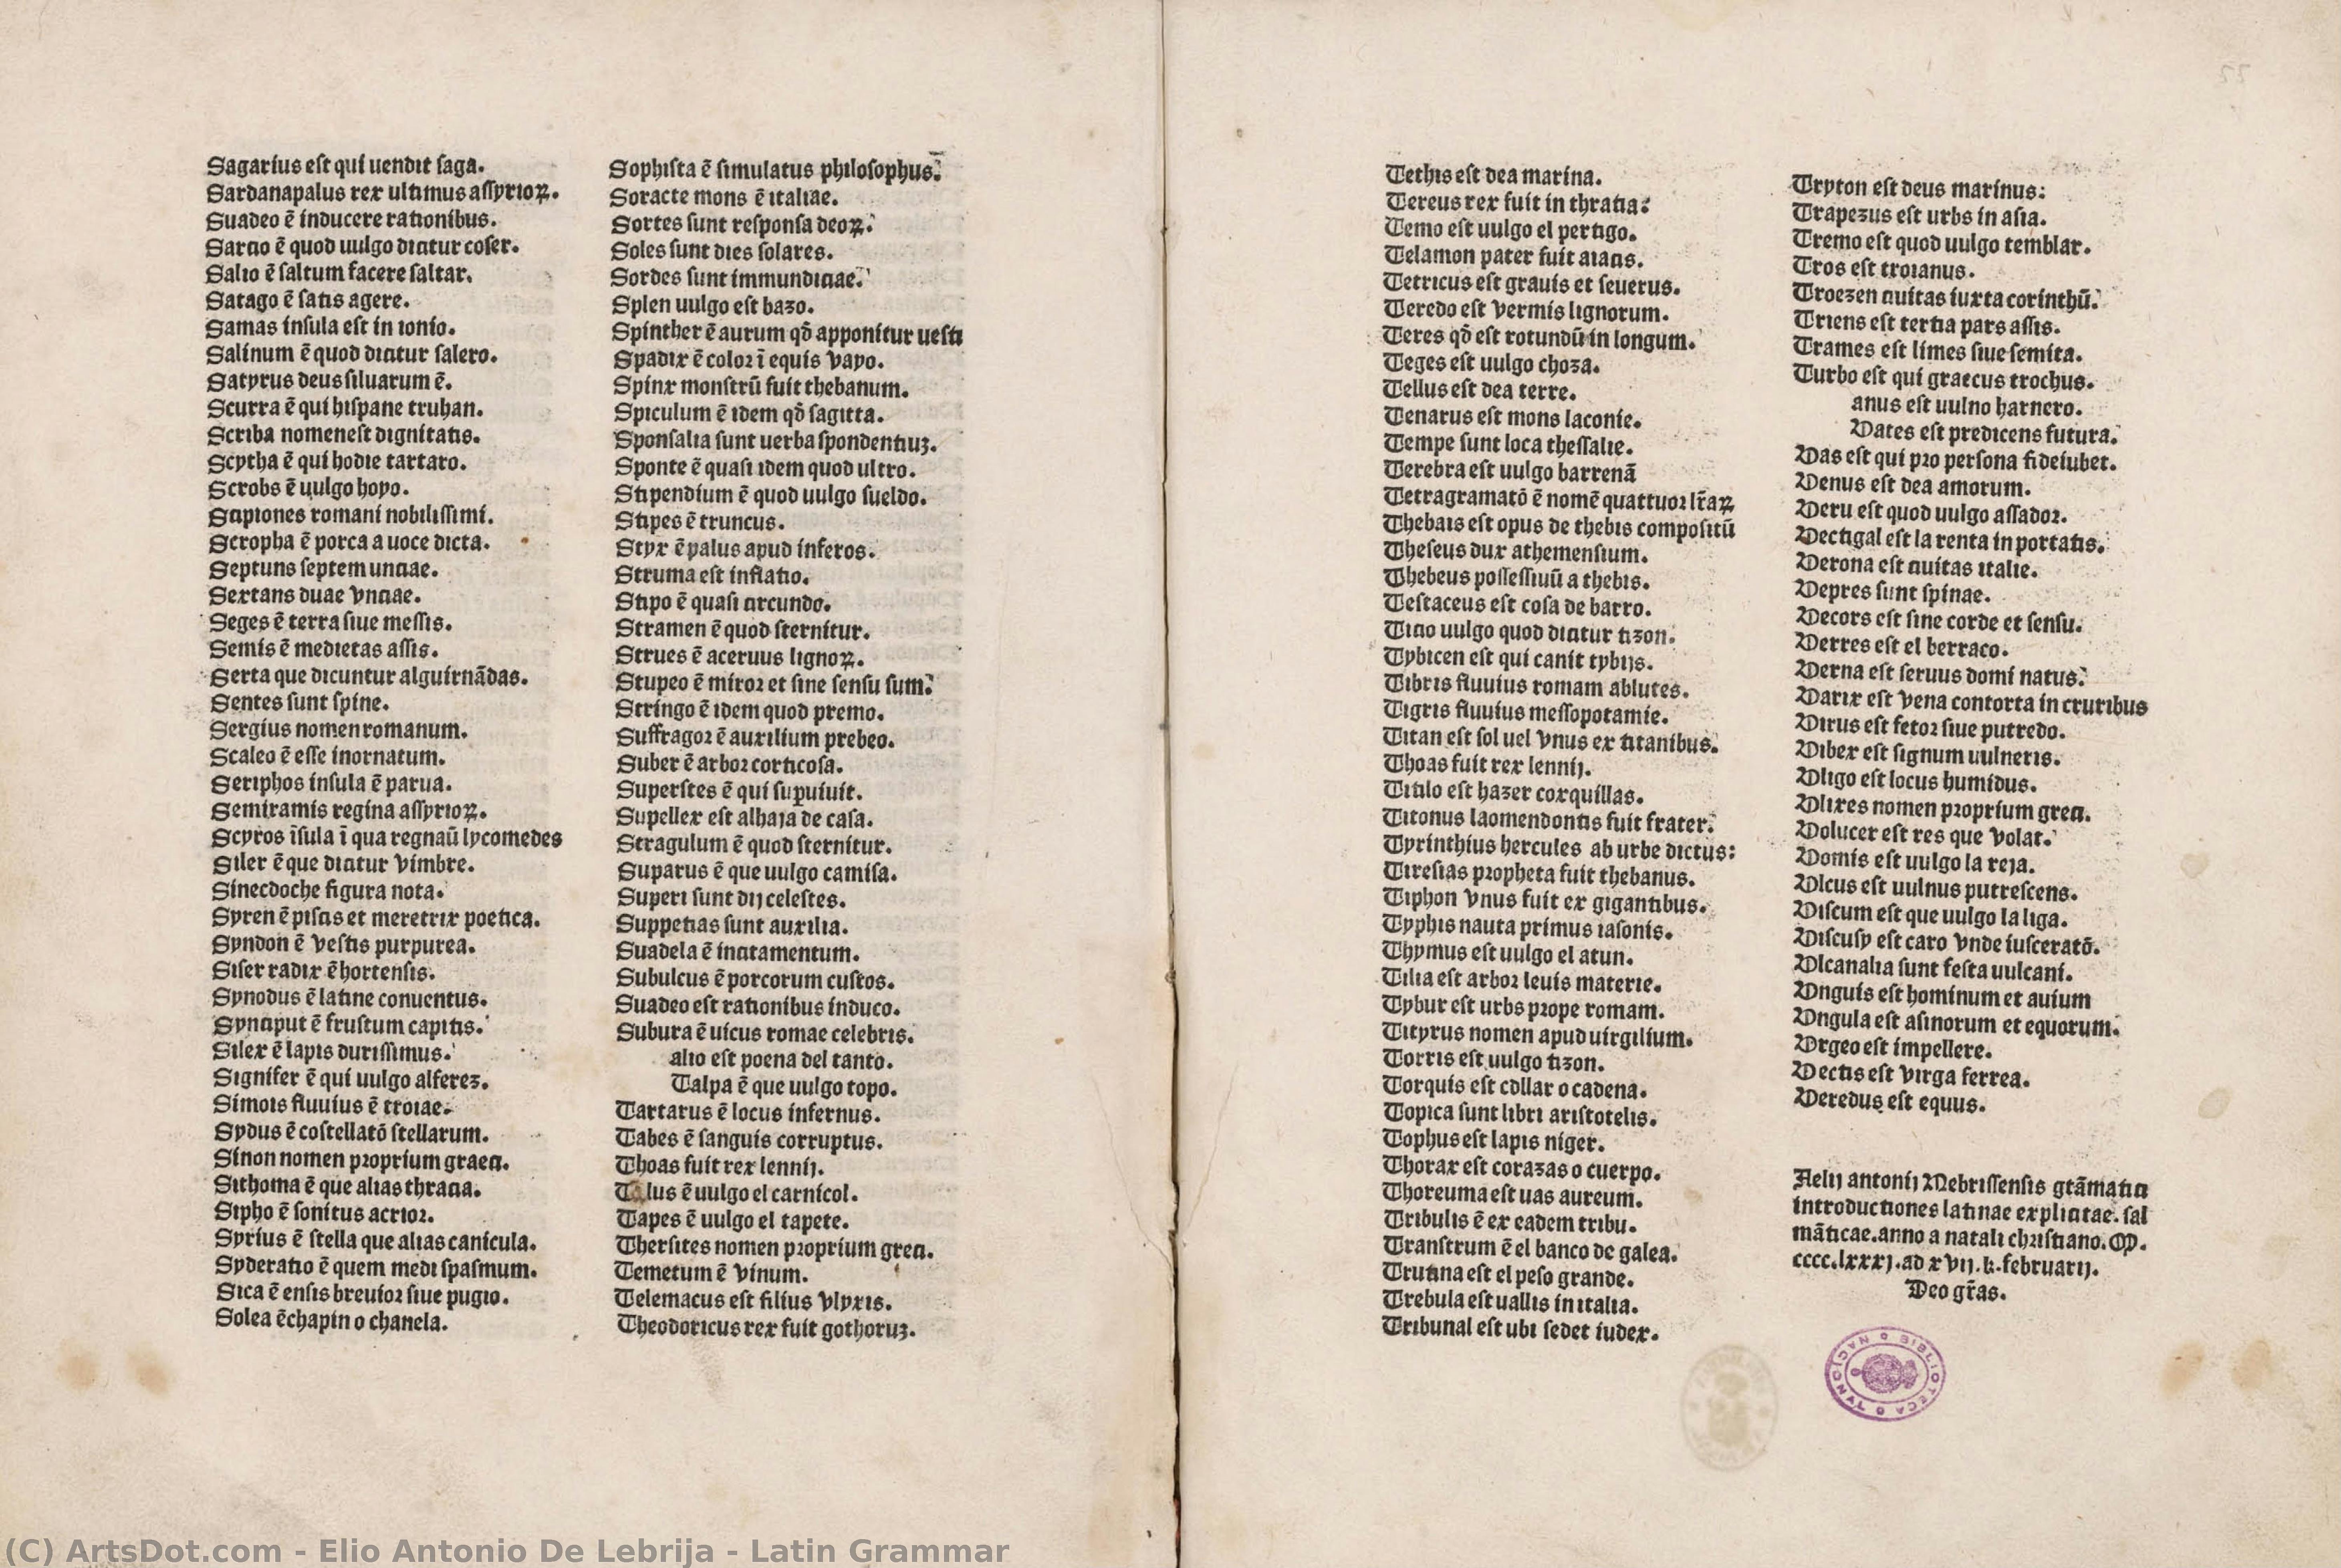 Sagarius est qui uendit saga.
Sardanapalus rex ultimus assyrioꝝ.
Suadeo ē inducere rationibus.
Sarcio ē quod uulgo dicitur coser.
Salio ē saltum facere saltar.
Satago ē satis agere.
Samas insula est in ionio.
Salinum ē quod dicitur salero.
Satyrus deus siluarum ē.
Scurra ē qui hispane truhan.
Scriba nomen est dignitatis.
Scytha ē qui hodie tartaro.
Scrobs ē uulgo hoyo.
Scipiones romani nobilissimi.
Scropha ē porca a uoce dicta.
Septuns septem unciae.
Sextans duae vnciae.
Seges ē terra siue messis.
Semis ē medietas assis.
Serta que dicuntur alguirnādas.
Sentes sunt spine.
Sergius nomen romanum.
Scaleo ē esse inornatum.
Seriphos insula ē parua.
Semiramis regina assyrioꝝ.
Scyros īsula ī qua regnaū lycomedes
Siler ē que dicitur vimbre.
Sinecdoche figura nota.
Syren ē piscis et meretrix poetica.
Syndon ē vestis purpurea.
Siser radix ē hortensis.
Synodus ē latine conuentus.
Synciput ē frustum capitis.
Silex ē lapis durissimus.
Signifer ē qui uulgo alferez.
Simois fluuius ē troiae.
Sydus ē costellatō stellarum.
Sinon nomen proprium graeci.
Sithoma ē que alias thracia.
Sipho ē sonitus acrior.
Syrius ē stella que alias canicula.
Syderatio ē quem medi spasmum.
Sica ē ensis breuior siue pugio.
Solea ē chapin o chanela.
Sophista ē simulatus philosophus.
Soracte mons ē italiae.
Sortes sunt responsa deoꝝ.
Soles sunt dies solares.
Sordes sunt immundiciae.
Splen uulgo est bazo.
Spinther ē aurum qđ apponitur uesti
Spadix ē color ī equis vayo.
Spinx monstrū fuit thebanum.
Spiculum ē idem qđ sagitta.
Sponsalia sunt uerba spondentiuꝫ.
Sponte ē quasi idem quod ultro.
Stipendium ē quod uulgo sueldo.
Stipes ē truncus.
Styx ē palus apud inferos.
Struma est inflatio.
Stipo ē quasi circundo.
Stramen ē quod sternitur.
Strues ē aceruus lignoꝝ.
Stupeo ē miror et sine sensu sum.
Stringo ē idem quod premo.
Suffragor ē auxilium prebeo.
Suber ē arbor corticosa.
Superstes ē qui suꝑuiuit.
Supellex est alhaja de casa.
Stragulum ē quod sternitur.
Suparus ē que uulgo camisa.
Superi sunt dij celestes.
Suppetias sunt auxilia.
Suadela ē incitamentum.
Subulcus ē porcorum custos.
Suadeo est rationibus induco.
Subura ē uicus romae celebris.
alio est poena del tanto.
Talpa ē que uulgo topo.
Tartarus ē locus infernus.
Tabes ē sanguis corruptus.
Thoas fuit rex lennij.
Talus ē uulgo el carnicol.
Tapes ē uulgo el tapete.
Thersites nomen proprium greci.
Temetum ē vinum.
Telemacus est filius vlyxis.
Theodoricus rex fuit gothoruꝫ.
Tethis est dea marina.
Tereus rex fuit in thratia:
Temo est uulgo el pertigo.
Telamon pater fuit aiacis.
Tetricus est grauis et seuerus.
Teredo est vermis lignorum.
Teres qđ est rotundū in longum.
Teges est uulgo choza.
Tellus est dea terre.
Tenarus est mons laconie.
Tempe sunt loca thessalie.
Terebra est uulgo barrenā
Tetragramatō ē nomē quattuor lr̄aꝝ
Thebais est opus de thebis compositū
Theseus dux athemensium.
Thebeus possessiuū a thebis.
Testaceus est cosa de barro.
Ticio uulgo quod dicitur tizon.
Tybicen est qui canit tybijs.
Tibris fluuius romam ablutes.
Tigris fluuius messopotamie.
Titan est sol uel vnus ex titanibus.
Thoas fuit rex lennij.
Titilo est hazer coxquillas.
Titonus laomendontis fuit frater.
Tyrinthius hercules ab urbe dictus:
Tiresias propheta fuit thebanus.
Tiphon vnus fuit ex gigantibus.
Typhis nauta primus iasonis.
Thymus est uulgo el atun.
Tilia est arbor leuis materie.
Tybur est urbs prope romam.
Tityrus nomen apud uirgilium.
Torris est uulgo tizon.
Torquis est collar o cadena.
Topica sunt libri aristotelis.
Tophus est lapis niger.
Thorax est corazas o cuerpo.
Thoreuma est uas aureum.
Tribulis ē ex eadem tribu.
Transtrum ē el banco de galea.
Trutina est el peso grande.
Trebula est uallis in italia.
Tribunal est ubi sedet iudex.
Tryton est deus marinus:
Trapezus est urbs in asia.
Tremo est quod uulgo temblar.
Tros est troianus.
Troezen ciuitas iuxta corinthū.
Triens est tertia pars assis.
Trames est limes siue semita.
Turbo est qui graecus trochus.
anus est uulno harnero.
Vates est predicens futura.
Vas est qui pro persona fideiubet.
Venus est dea amorum.
Veru est quod uulgo assador.
Vectigal est la renta in portatis.
Verona est ciuitas italie.
Vepres sunt spinae.
Vecors est sine corde et sensu.
Verres est el berraco.
Verna est seruus domi natus.
Varix est vena contorta in cruribus
Virus est fetor siue putredo.
Viber est signum uulneris.
Vligo est locus humidus.
Vlixes nomen proprium greci.
Volucer est res que volat.
Vomis est uulgo la reja.
Vlcus est uulnus putrescens.
Viscum est que uulgo la liga.
Viscusy est caro vnde iusceratō.
Vlcanalia sunt festa uulcani.
Vnguis est hominum et auium
Vngula est asinorum et equorum.
Vrgeo est impellere.
Vectis est virga ferrea.
Veredus est equus.
Aelij antonij Nebrissensis gtāmatici
introductiones latinae explicitae. sal
māticae. anno a natali christiano. M.
cccc.lxxxj. ad xvij. k. februarij.
Deo gr̄as.
BIBLIOTECA NACIONAL
(C) ArtsDot.com - Elio Antonio De Lebrija - Latin Grammar